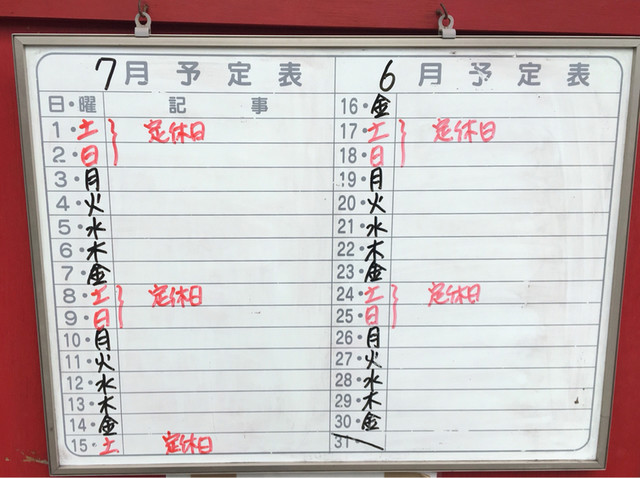 7月予定表
日・曜 記事
1・土 定休日
2・日
3・月
4・火
5・水
6・木
7・金
8・土 定休日
9・日
10・月
11・火
12・水
13・木
14・金
15・土 定休日
6月予定表
16・金
17・土 定休日
18・日
19・月
20・火
21・水
22・木
23・金
24・土 定休日
25・日
26・月
27・火
28・水
29・木
30・金
31